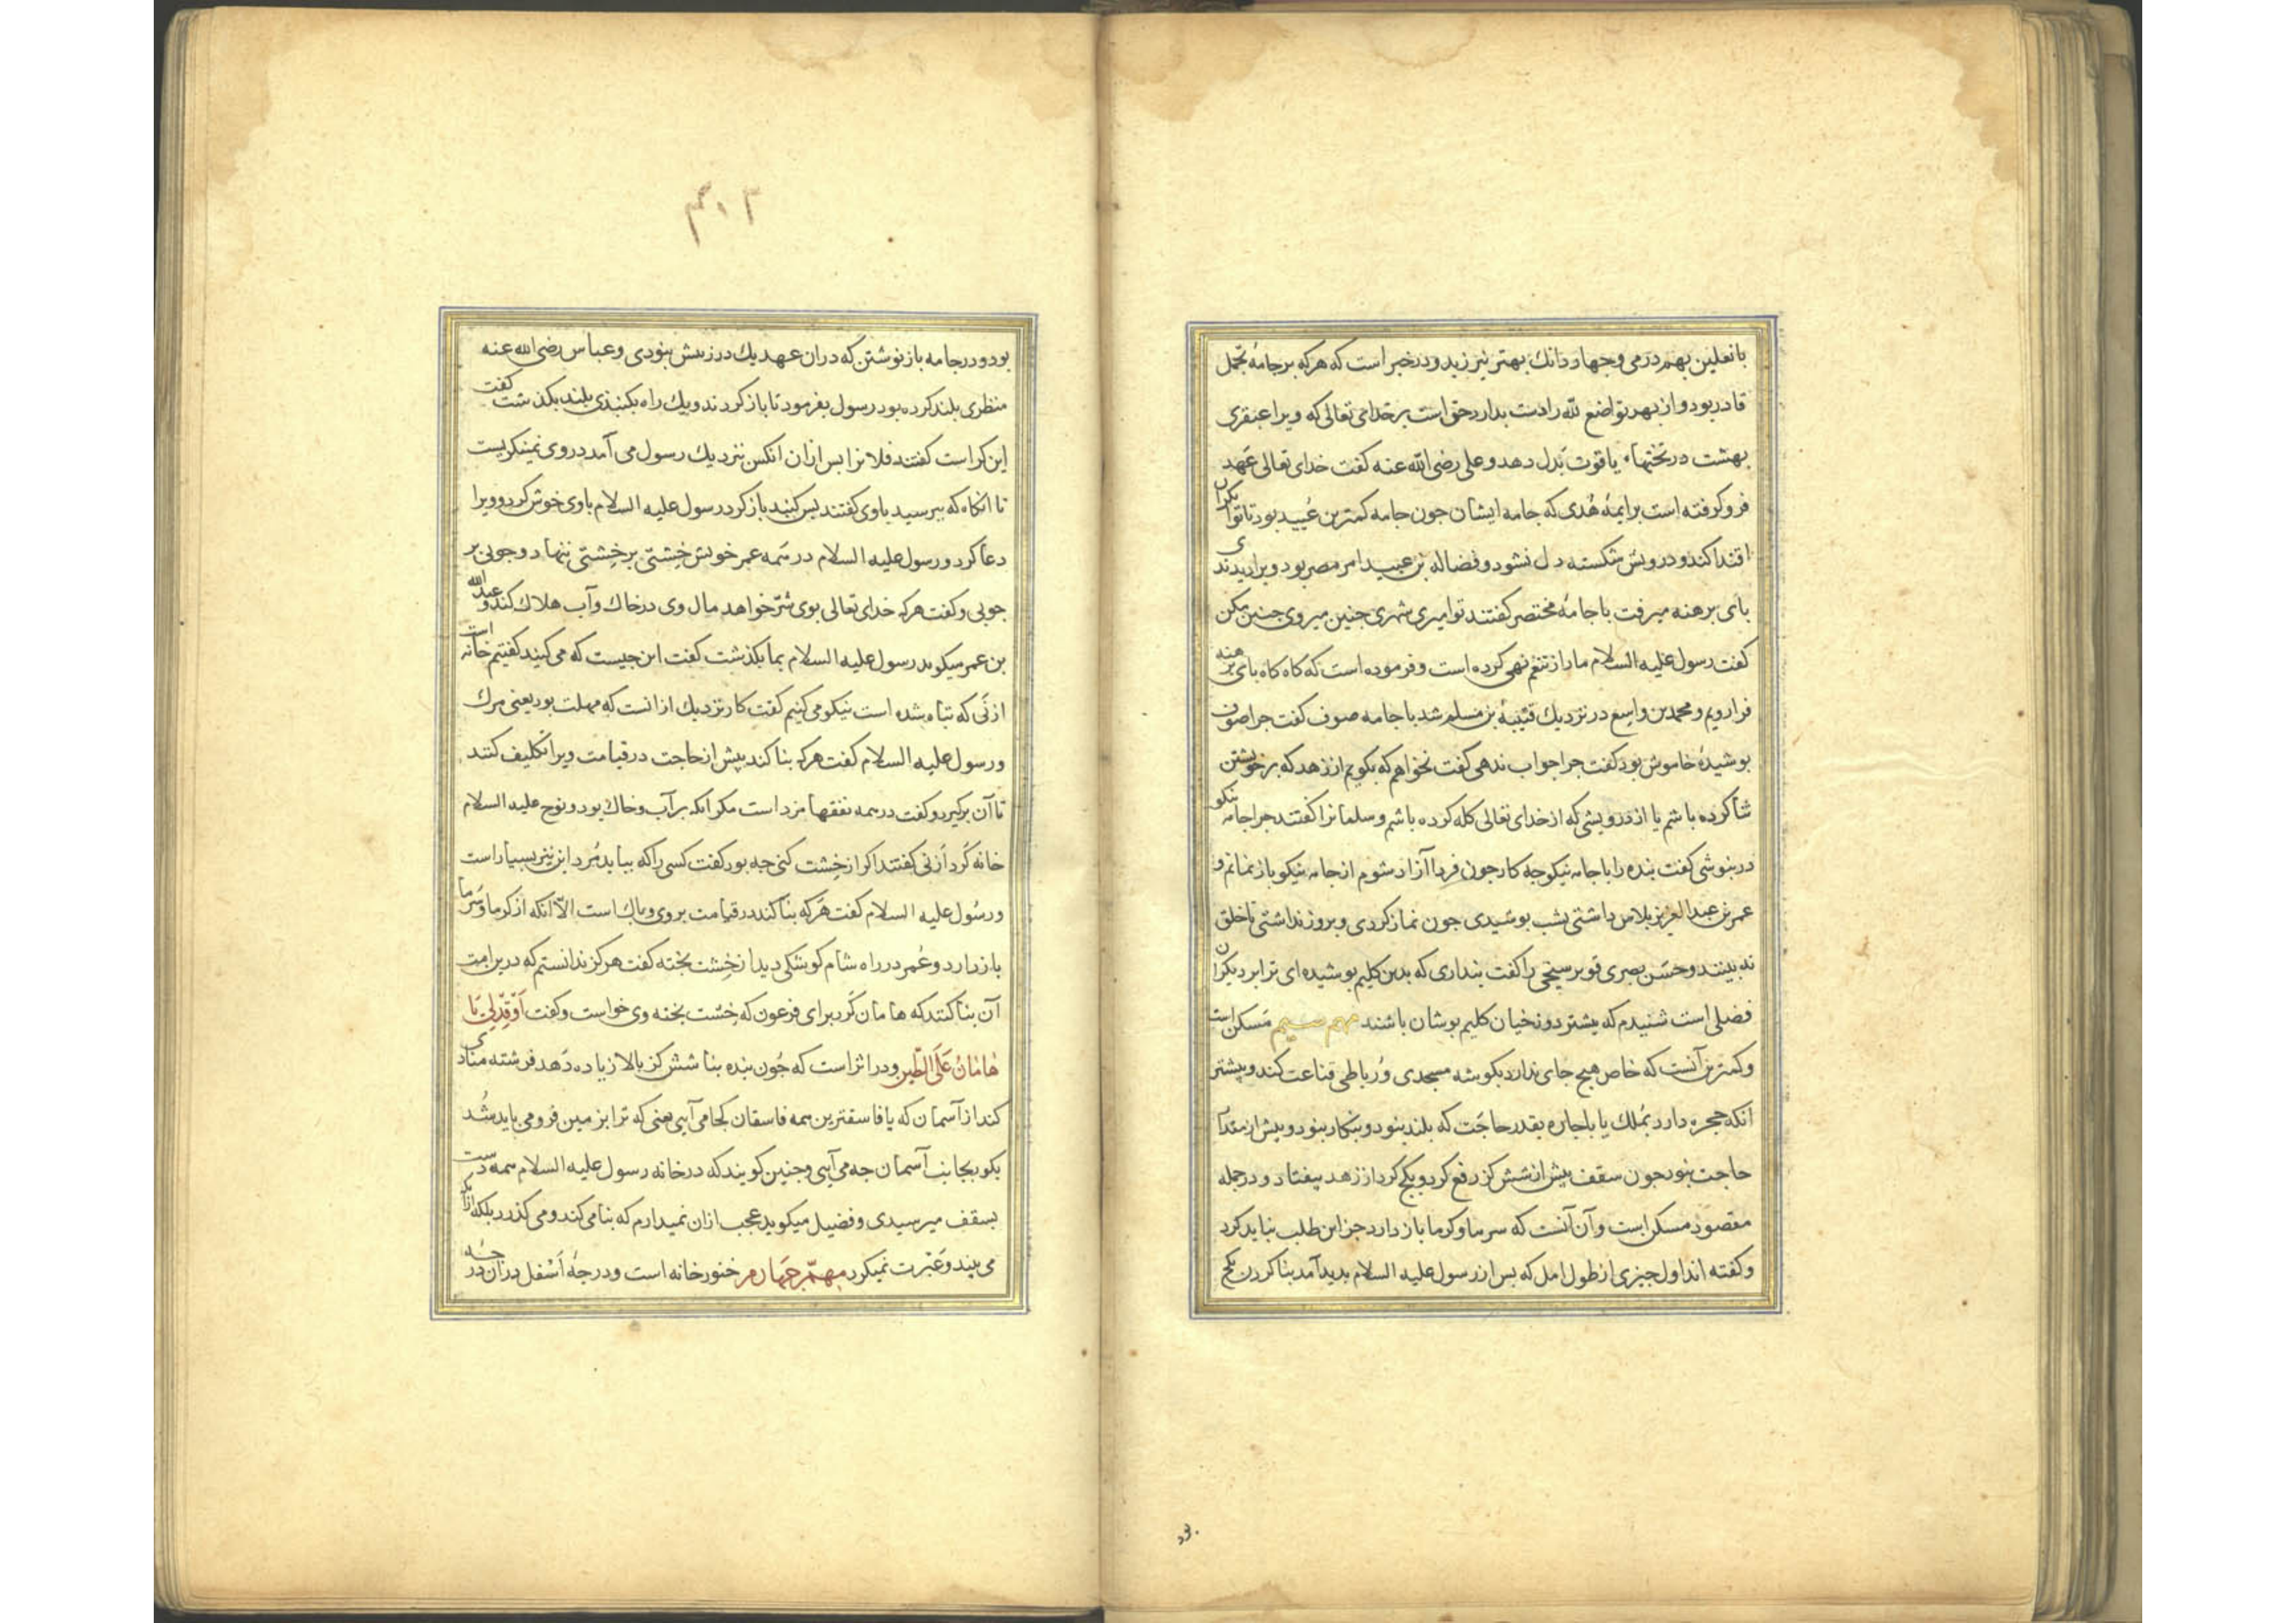 با نعلین بهم درمی و جهار دانك بهتر نیرزید و در خبر است که هرکه بر جامهٔ تجمل
قادر بود و از بهر تواضع لله را دست بدارد حق است بر خدای تعالی که ویرا عبقری
بهشت در تختهاء یاقوت بدل دهد و علی رضی الله عنه کفت خدای تعالی عهد
فرو کرفته است بر ایمهٔ هُدی که جامه ایشان جون جامه کمترین عُیید بود تا توانکران
اقتدا کند و درویش شکسته دل نشود و فضاله بن عبید امر مصر بود ویرا دیدندی
بای برهنه میرفت با جامهٔ مختصر کفتند تو امیری شهری جنین میروی جنین مکن
کفت رسول علیه السلام ما را از تنعّم نهی کرده است و فرموده است که کاه کاه بای برهنه
فرا رویم و محمد بن واسِع در نزدیك قتیبهٔ بن مسلم شد با جامه صوف کفت جرا صوف
بوشیدهٔ خاموش بود کفت جرا جواب ندهی کفت نخواهم که بکویم از زهد که بر خویشتن
ثنا کرده باشم یا از درویشی که از خدای تعالی کله کرده باشم و سلمانرا کفتند جرا جامه نیکو
در نبوشی کفت بنده را با جامه نیکو جه کار جون فردا آزاد شوم از جامه نیکو باز نمانم و
عمر بن عبد العزیز بلاس داشتی بشب بوشیدی جون نماز کردی و بروز نداشتی تا خلق
نه بینند و حسَن بصری فو برسبخی را کفت بنداری که بدین کلیم بوشیده‌ای ترا بر دیکران
فضلی است شنیدم که بیشتر دوزخیان کلیم بوشان باشند مهم سیم مَسکن است
و کمترین آنست که خاص هیج جای ندارد بکوشه مسجدی وُ رباطی قناعت کند و بیشتر
انکه حجره دارد بمُلك یا باجاره بقدر حاجَت که بلند بنود و بنکار بنود و بیش از مقدار
حاجت بنود جون سقف بیش از شش کز رفع کرد و بکج کرد از زهد بیفتاد و در جمله
مقصود مسکن است و آن آنست که سرما و کرما باز دارد جز این طلب نباید کرد
و کفته اند اول جیزی از طول امل که بس از رسول علیه السلام بدید آمد بنا کردن بکج
بد.
بود و درز جامه باز نوشتن که دران عهد یك درز بیش بنودی و عباس رضی الله عنه
منظری بلند کرده بود رسول بفرمود تا باز کردند و یك راه بکنبذی بلند بکذشت کفت
این کراست کفتند فلانرا بس ازان انکس نزدیك رسول می آمد در وی نمینکریست
تا انکاه که ببرسید با وی کفتند بس کنبد باز کرد رسول علیه السلام با وی خوش کرد و ویرا
دعا کرد و رسول علیه السلام در همه عمر خویش خِشتی بر خِشتی ننهاد و جوبی بر
جوبی و کفت هرکه خدای تعالی بوی شرّ خواهد مال وی در خاك و آب هلاك کند و عبد الله
بن عمر میکوید رسول علیه السلام بما بکذشت کفت این جیست که می کنید کفتیم خانه است
از نَی که تباه شده است نیکو می کنیم کفت کار نزدیك از انست که مهلت بود یعنی مرك
و رسول علیه السلام کفت هرکه بنا کند بیش از حاجت در قیامت ویرا تکلیف کنند
تا آن برکیرد و کفت در همه نفقها مزد است مکر انکه بر آب و خاك بود و نوح علیه السلام
خانه کَرد از نی کفتند اکر از خِشت کنی جه بود کفت کسی را که بباید مُرد این نیز بسیار است
و رسُول علیه السلام کفت هَرکه بنا کند در قیامت بر وی وبال است الّا انکه از کرما و سَرما
باز دارد و عُمر در راه شام کوشکی دید از خِشت بخته کفت هرکز ندانستم که درین امت
آن بنا کنند که هامان کَرد برای فرعون که خِشت بخته وی خواست و کفت اَوْقِدْ لِی یَا
هَامَانُ عَلَی الطِّین و در اثر است که جُون بنده بنا شش کز بالا زیاده دَهد فرشته منادی
کند از آسمان که یا فاسقترین همه فاسقان کجا می آیی یعنی که ترا بزمین فرو می باید شُد
بکو بجانب آسمان جه می آیی و جنین کویند که در خانه رسول علیه السلام همه دست
بسقف میرسیدی و فضیل میکوید عجب ازان نمیدارم که بنا می کند و می کذرد بلکه ازانکه
می بیند و عَبْرت نمیکیرد مهمّ جهارم خنور خانه است و درجهٔ اَسْفل دران درجه